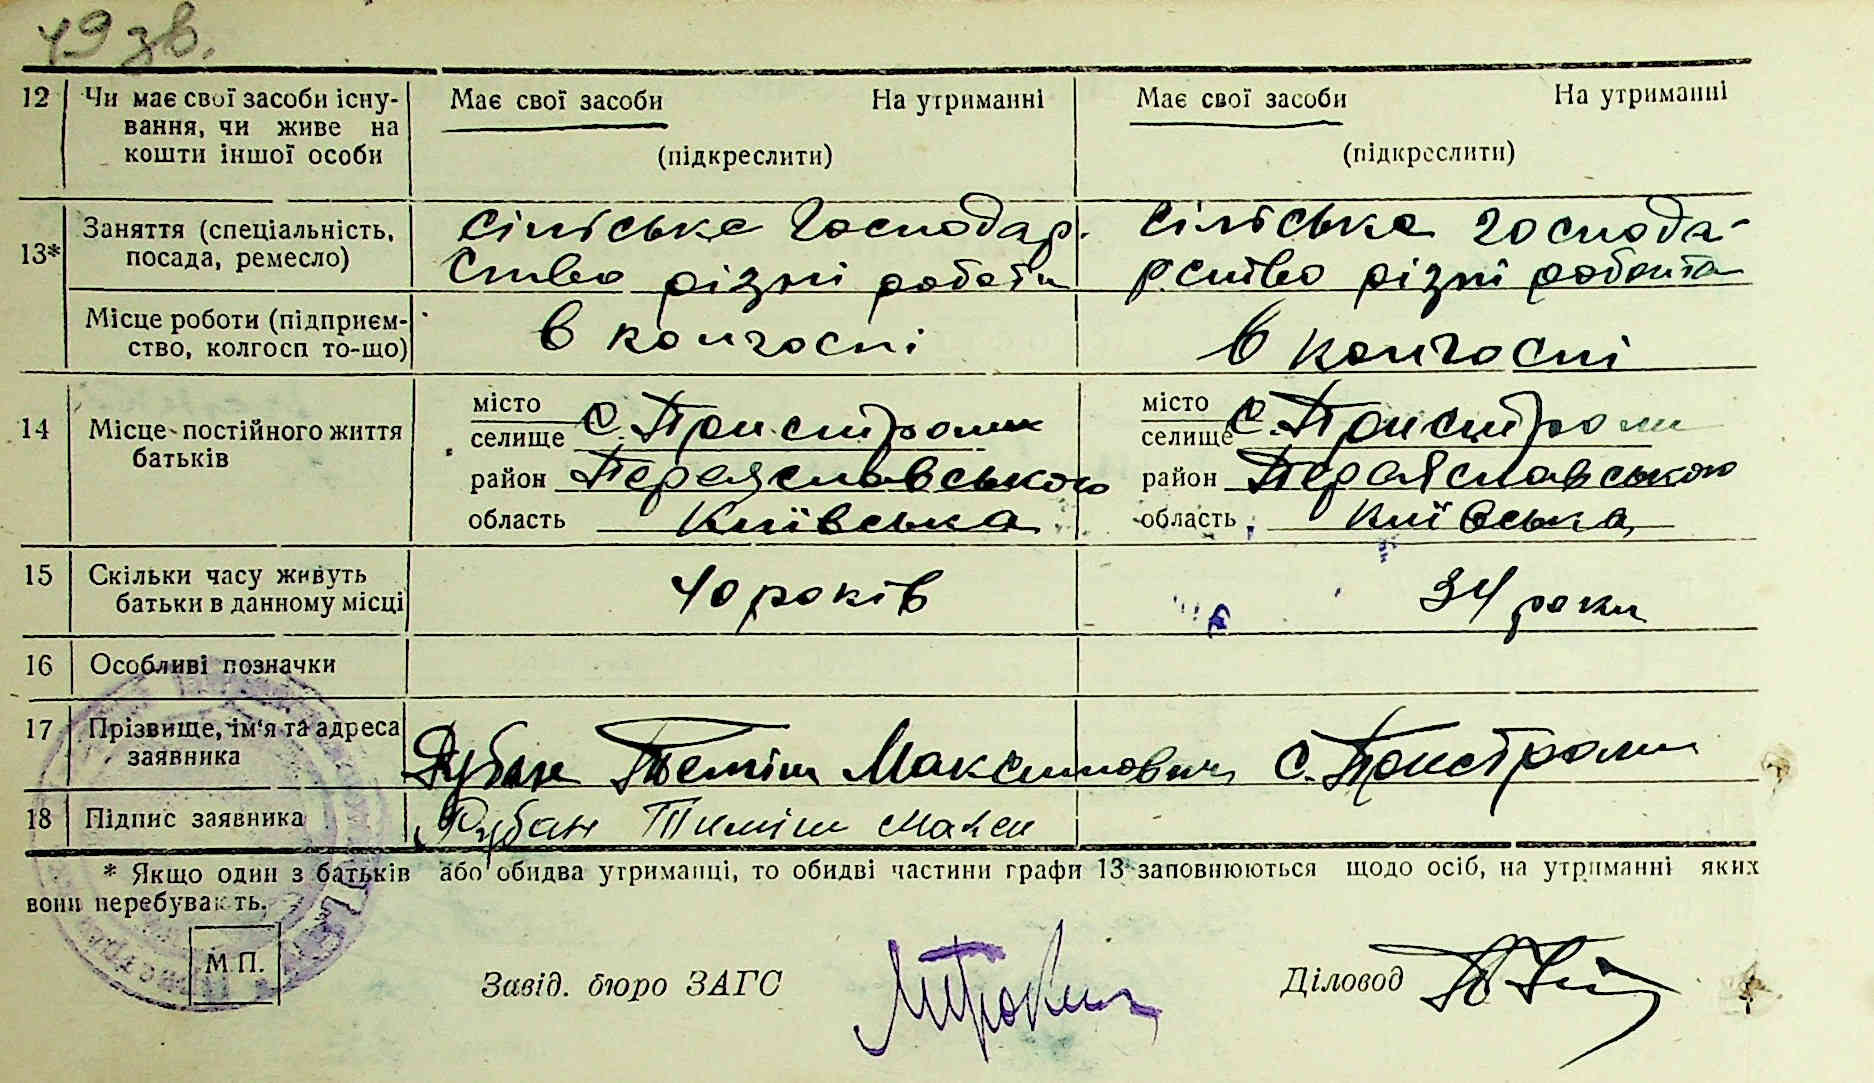 49 зв.
12 Чи має свої засоби існу- Має свої засоби На утриманні Має свої засоби На утриманні
вання, чи живе на
кошти іншої особи (підкреслити) (підкреслити)
13* Заняття (спеціальність, сільське господар. сільське господа-
посада, ремесло) ство різні роботи рство різні робота
Місце роботи (підприєм- в колгоспі в колгоспі
ство, колгосп то-що)
14 Місце постійного життя місто с. Пристроми місто с. Пристроми
батьків селище селище
район Переяславського район Переяславського
область Київська область Київська
15 Скільки часу живуть 40 років 34 роки
батьки в данному місці
16 Особливі позначки
17 Прізвище, ім'я та адреса Рубан Теміш Максимович с. Пристроми
заявника
18 Підпис заявника Рубан Тиміш Макси
* Якщо один з батьків або обидва утриманці, то обидві частини графи 13 заповнюються щодо осіб, на утриманні яких
вони перебувають.
М.П. Завід. бюро ЗАГС Діловод